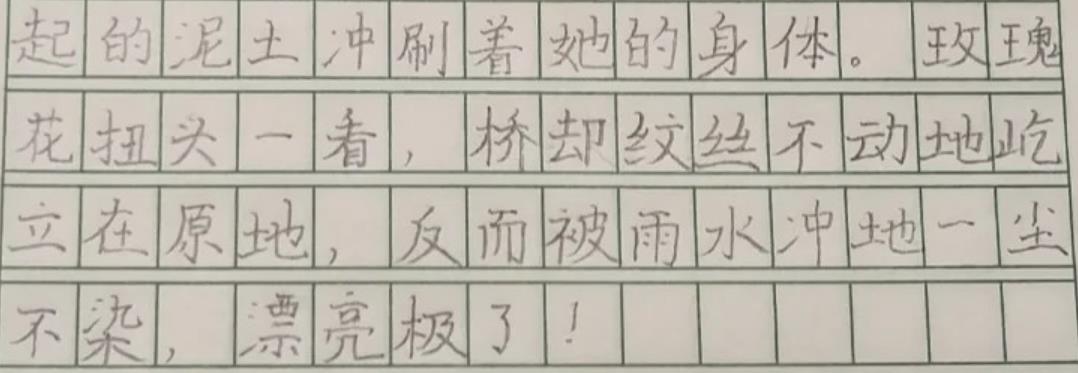 起的泥土冲刷着她的身体。玫瑰
花扭头一看，桥却纹丝不动地屹
立在原地，反而被雨水冲地一尘
不染，漂亮极了！